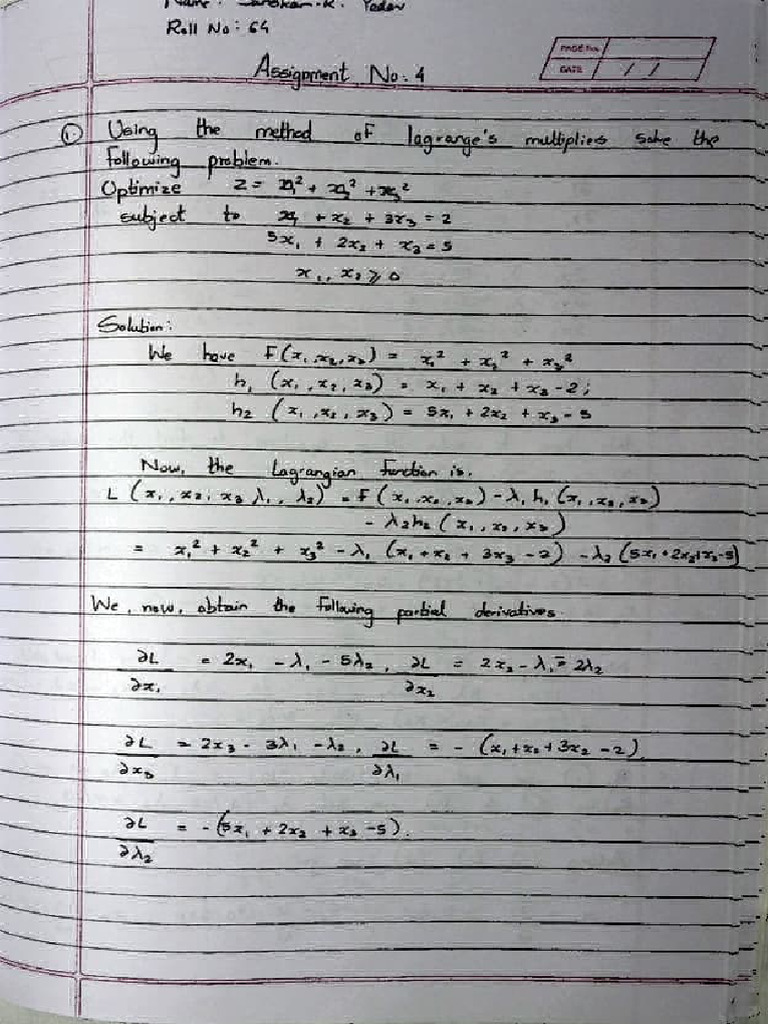 Name : K. Yadav
Roll No : 64
Assignment No. 4
PAGE No.
DATE / /
① Using the method of lagrange's multipliers solve the
following problem.
Optimize Z = x₁² + x₂² + x₃²
subject to x₁ + x₂ + 3x₃ = 2
5x₁ + 2x₂ + x₃ = 5
x₁, x₂ ≥ 0
Solution:
We have F(x₁, x₂, x₃) = x₁² + x₂² + x₃²
h₁ (x₁, x₂, x₃) = x₁ + x₂ + x₃ - 2;
h₂ (x₁, x₂, x₃) = 5x₁ + 2x₂ + x₃ - 5
Now, the Lagrangian function is.
L (x₁, x₂, x₃ λ₁, λ₂) = F(x₁, x₂, x₃) - λ₁ h₁ (x₁, x₂, x₃)
- λ₂h₂ (x₁, x₂, x₃)
= x₁² + x₂² + x₃² - λ₁ (x₁ + x₂ + 3x₃ - 2) - λ₂ (5x₁ + 2x₂ + x₃ - 5)
We, now, obtain the following partial derivatives.
∂L/∂x₁ = 2x₁ - λ₁ - 5λ₂, ∂L/∂x₂ = 2x₂ - λ₁ = 2λ₂
∂L/∂x₃ = 2x₃ - 3λ₁ - λ₂, ∂L/∂λ₁ = - (x₁ + x₂ + 3x₂ - 2)
∂L/∂λ₂ = - (5x₁ + 2x₂ + x₃ - 5).